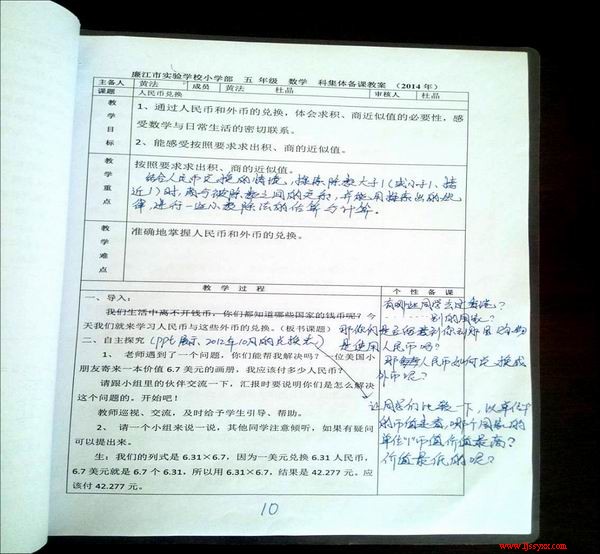 廉江市实验学校小学部 五 年级 数学 科集体备课教案 （2014 年）
主备人 黄法 成员 黄法 杜晶 审核人 杜晶
课题 人民币兑换
教学目标
1、通过人民币和外币的兑换，体会求积、商近似值的必要性，感
受数学与日常生活的密切联系。
2、能感受按照要求求出积、商的近似值。
教学重点
按照要求求出积、商的近似值。
结合人民币兑换的情境，探索除数大于1（或小于1、接
近1）时，商与被除数之间的关系，并能用探索出的规
律，进行一些小数除法的估算与计算。
教学难点
准确地掌握人民币和外币的兑换。
教 学 过 程
个 性 备 课
一、导入：
我们生活中离不开钱币，你们都知道哪些国家的钱币呢？今
天我们就来学习人民币与这些外币的兑换。（板书课题）
二、自主探究（ppt展示，2012年10月的兑换表）
1、 老师遇到了一个问题，你们能帮我解决吗？一位美国小
朋友寄来一本价值 6.7 美元的画册，我应该付多少人民币？
请跟小组里的伙伴交流一下，汇报时要说明你们是怎么解决
这个问题的。开始吧！
教师巡视、交流，及时给予学生引导、帮助。
2、 请一个小组来说一说，其他同学注意倾听，如果有疑问
可以提出来。
生：我们的列式是 6.31×6.7，因为一美元兑换 6.31 人民币，
6.7 美元就是 6.7 个 6.31，所以用 6.31×6.7，结果是 42.277 元。应
该付 42.277 元。
有哪些同学去过香港？
别的国家？
是使用人民币吗？
那人民币如何兑换成
外币呢？
让同学们比较一下，以单位
的币值是看，哪个国家的
单位币值价值最高？
价值最低的呢？
10
www.ljssyxx.com